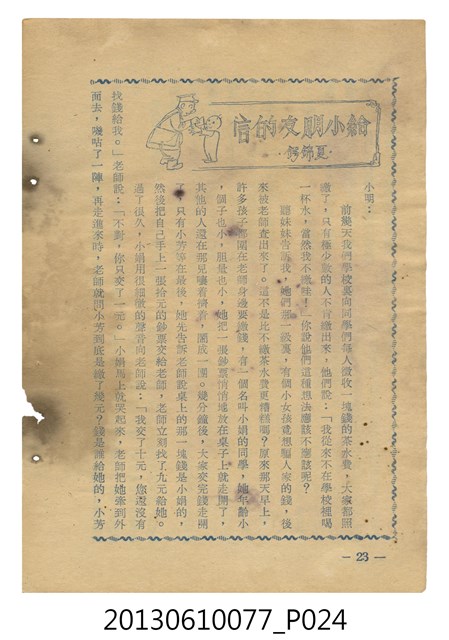 給小朋友的信
·夏錦鍔·
小明：
前幾天我們學校裏向同學們每人徵收一塊錢的茶水費，大家都照
繳了，只有極少數的人不肯繳出來，他們說：「我從來不在學校裡喝
一杯水，當然我不繳哇！」你說他們這種想法應該不應該呢？
聽妹妹告訴我，她們那一級裏，有個小女孩竟想騙人家的錢，後
來被老師查出來了。這不是比不繳茶水費更糟糕嗎？原來那天早上，
許多孩子都圍在老師身邊要繳錢，有一個名叫小娟的同學，她年齡小
，個子也小，胆量也小，她把一張鈔票悄悄地放在桌子上就走開了，
其他的人還在那兒嚷着擠着，圍成一團。幾分鐘後，大家交完錢走開
了，只有小芳等在最後，她先告訴老師說桌上的那一塊錢是小娟的，
然後把自己手上一張拾元的鈔票交給老師，老師立刻找了九元給她。
過了很久，小娟用很細微的聲音向老師說：「我交了十元，您還沒有
找錢給我。」老師說：「不對，你只交了一元。」小娟馬上就哭起來，老師把她牽到外
面去，嘰咕了一陣，再走進來時，老師就問小芳到底是繳了幾元？錢是誰給她的，小芳
— 23 —
20130610077_P024